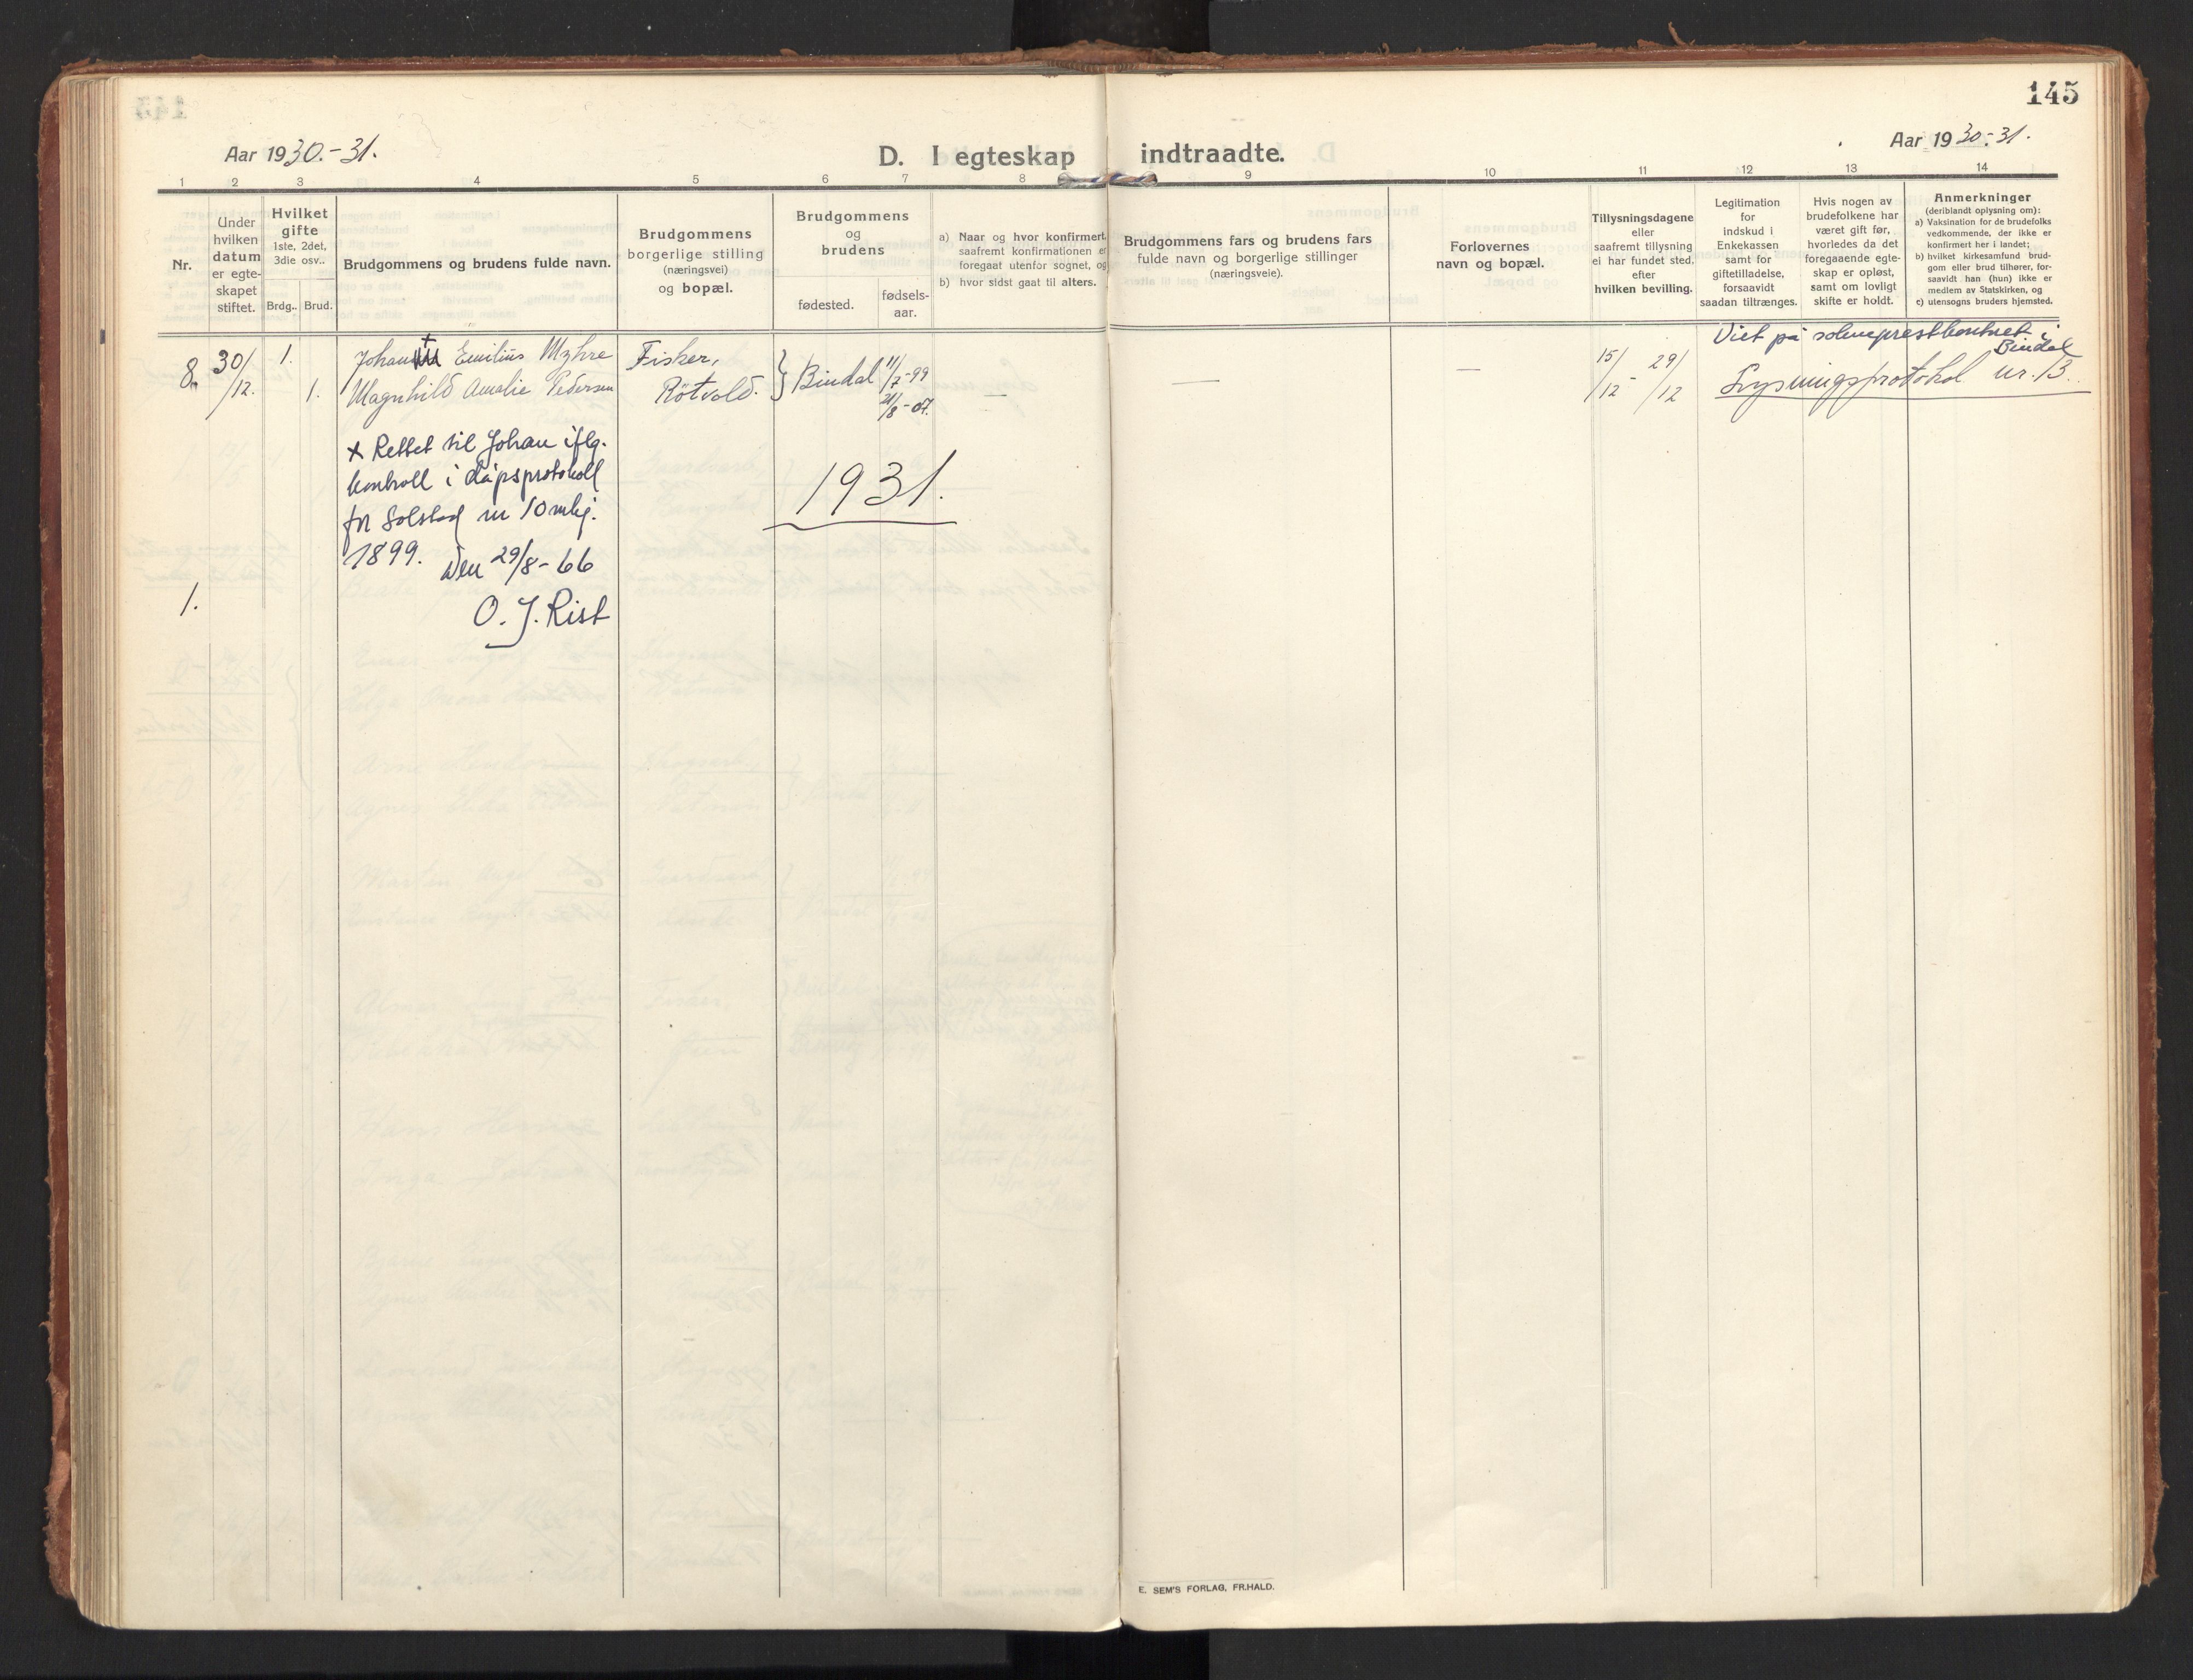 145
Aar 1930.-31.
D. I egteskap indtraadte.
Aar 1930.-31.
1 2 3 4 5 6 7 8 9 10 11 12 13 14
Nr.
Under
hvilken
datum
er egte-
skapet
stiftet.
Hvilket
gifte
1ste, 2det,
3die osv..
Brdg.. Brud.
Brudgommens og brudens fulde navn.
Brudgommens
borgerlige stilling
(næringsvei)
og bopæl.
Brudgommens
og
brudens
fødested.
fødsels-
aar.
a) Naar og hvor konfirmert,
saafremt konfirmationen er
foregaat utenfor sognet, og
b) hvor sidst gaat til alters.
Brudgommens fars og brudens fars
fulde navn og borgerlige stillinger
(næringsveie).
Forlovernes
navn og bopæl.
Tillysningsdagene
eller
saafremt tillysning
ei har fundet sted.
efter
hvilken bevilling.
Legitimation
for
indskud i
Enkekassen
samt for
giftetilladelse,
forsaavidt
saadan tiltrænges.
Hvis nogen av
brudefolkene har
været gift før,
hvorledes da det
foregaaende egte-
skap er opløst,
samt om lovligt
skifte er holdt.
Anmerkninger
(deriblandt oplysning om):
a) Vaksination for de brudefolks
vedkommende, der ikke er
konfirmert her i landet;
b) hvilket kirkesamfund brud-
gom eller brud tilhører, for-
saavidt han (hun) ikke er
medlem av Statskirken, og
c) utensogns bruders hjemsted.
8. 30/12. 1. Johan + Emilius Myhre Fisker, } Bindal 11/7-99 — — 15/12 - 29/12 Viet på sokneprestkontoret i Bindal
1. Magnhild Amalie Pedersen Røtvold. 21/8-07. — Lysningsprotokol nr. 13.
+ Rettet til Johan iflg.
kontroll i dåpsprotokoll
for Solstad nr 10 mkj.
1899. Den 29/8-66
O. J. Rist
1931.
1.
E. SEM'S FORLAG, FR.HALD.